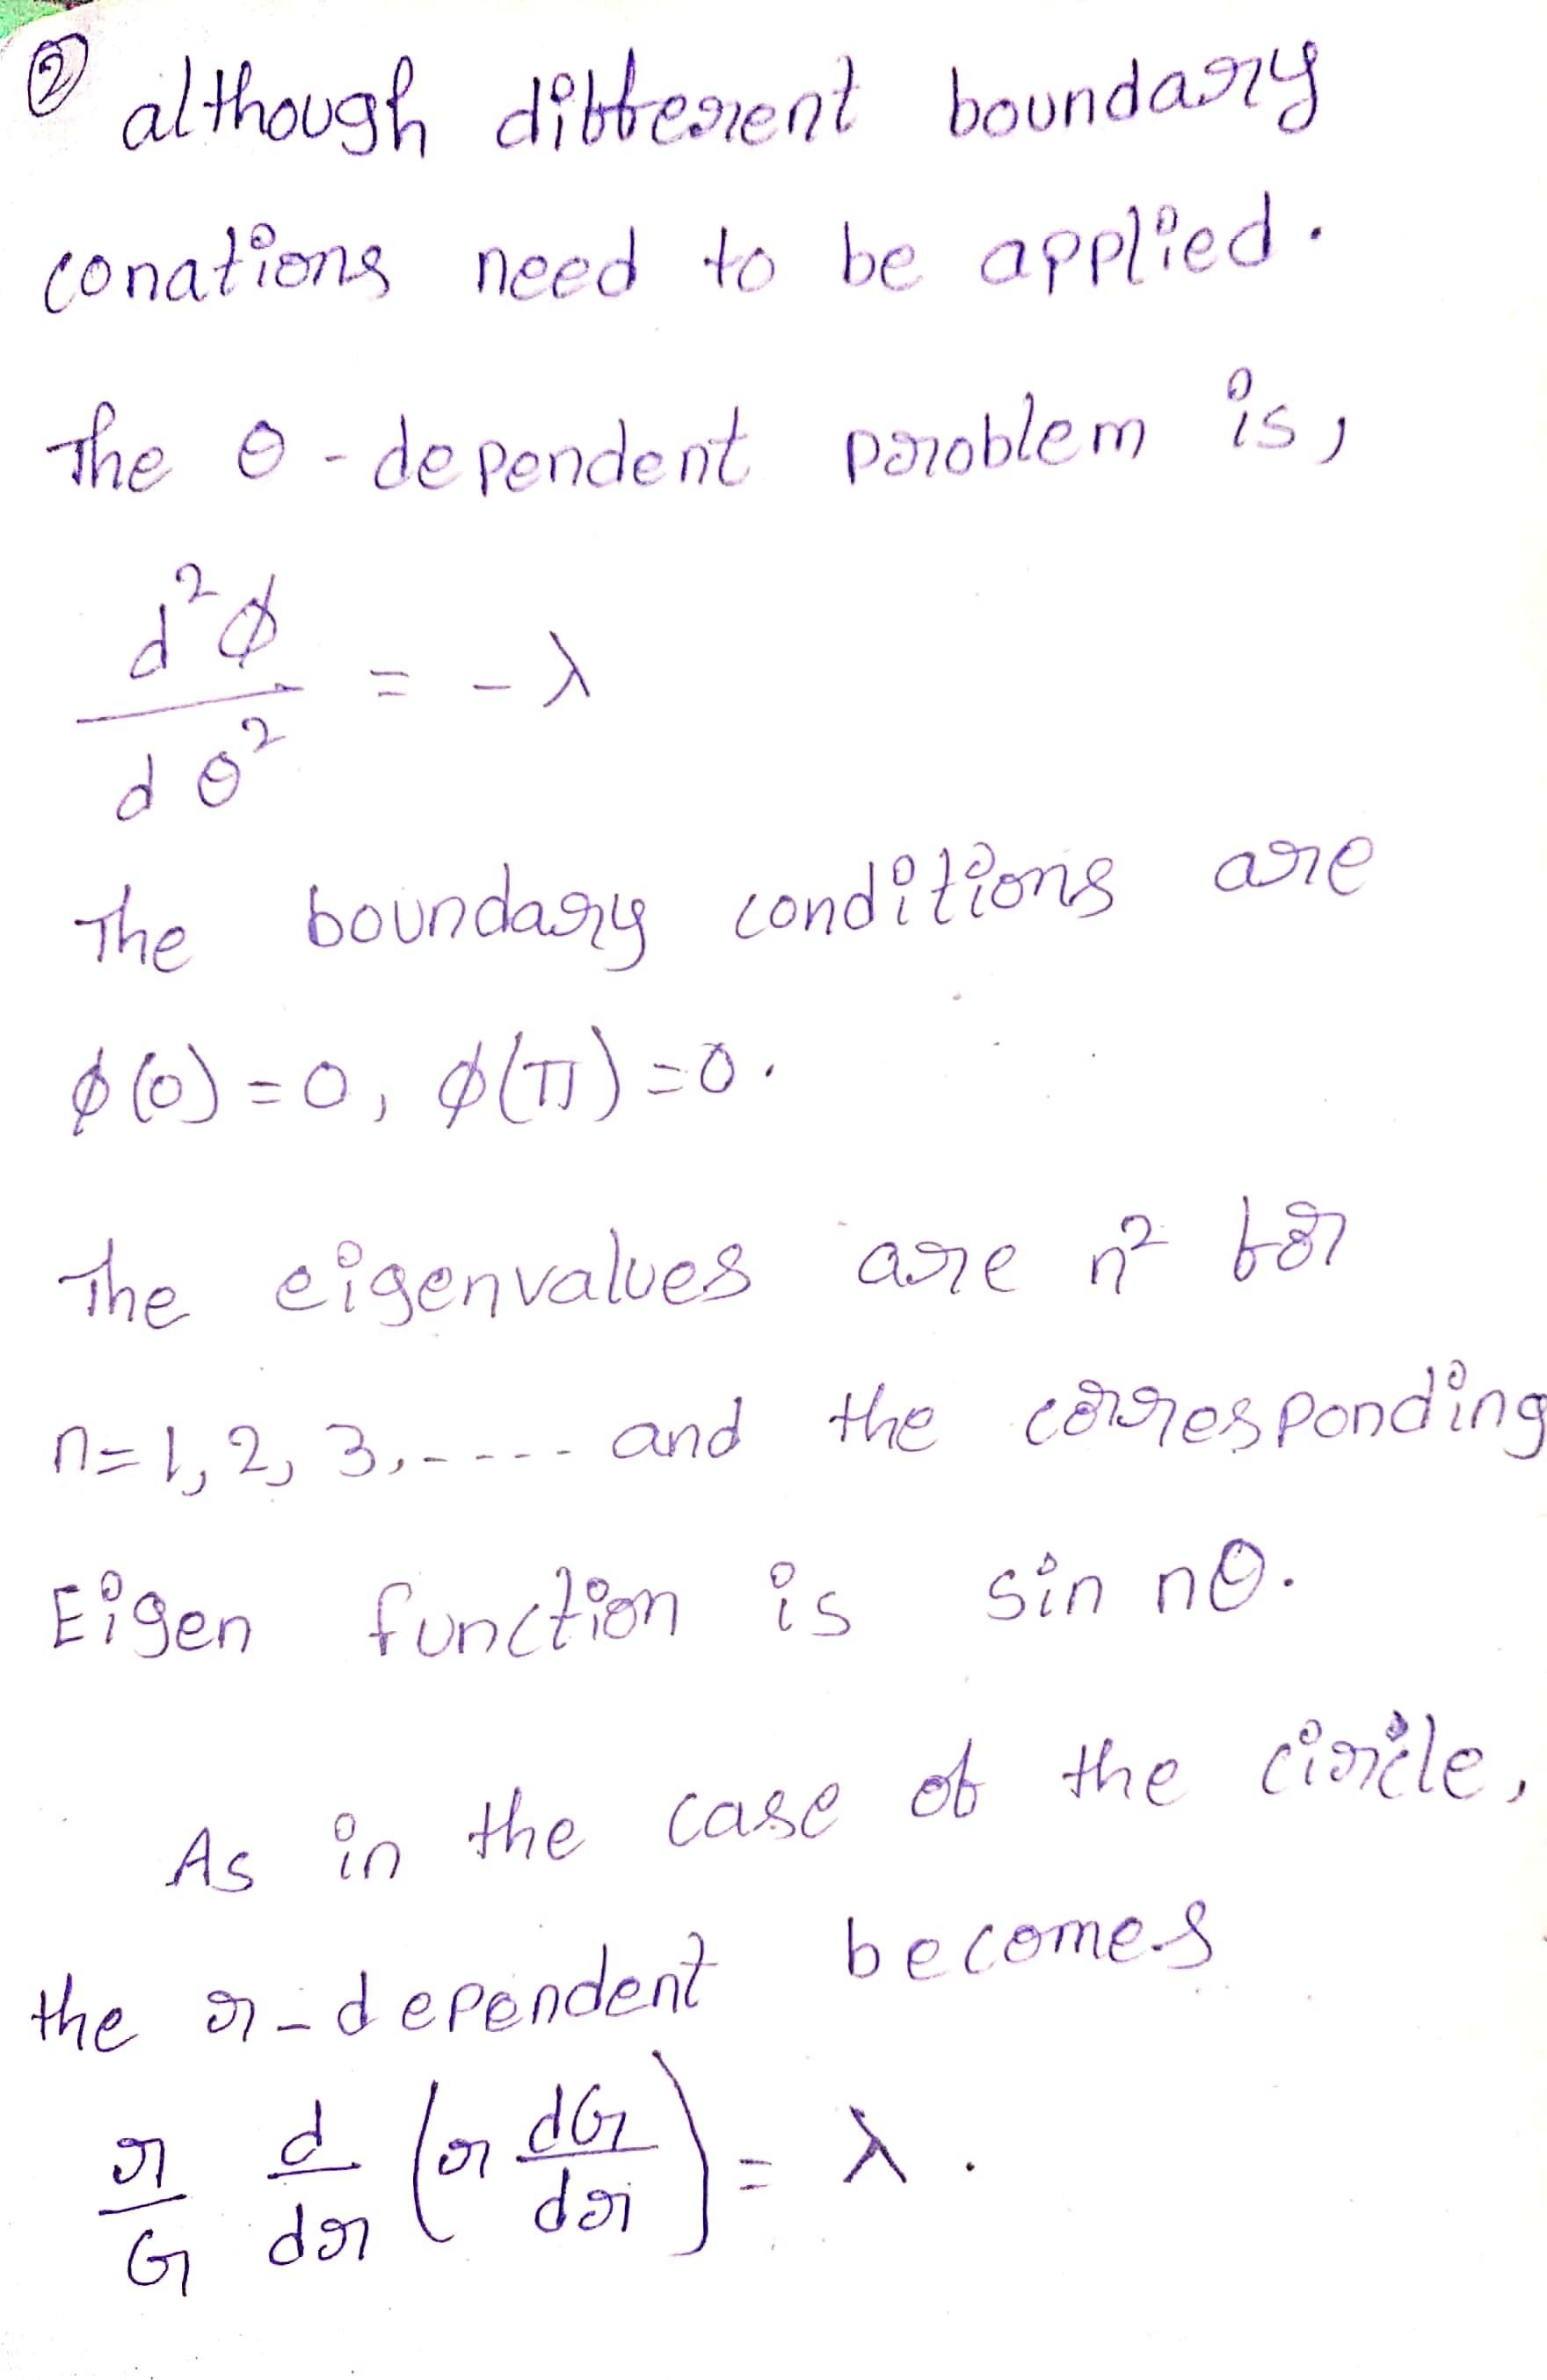 ② although different boundary
conations need to be applied.
The θ-dependent problem is,
d²φ/dθ² = -λ
The boundary conditions are
φ(0)=0, φ(π)=0.
The eigenvalues are n² for
n=1, 2, 3,----- and the corresponding
Eigen function is sin nθ.
As in the case of the circle,
the r-dependent becomes
r/G d/dr (r dG/dr) = λ.